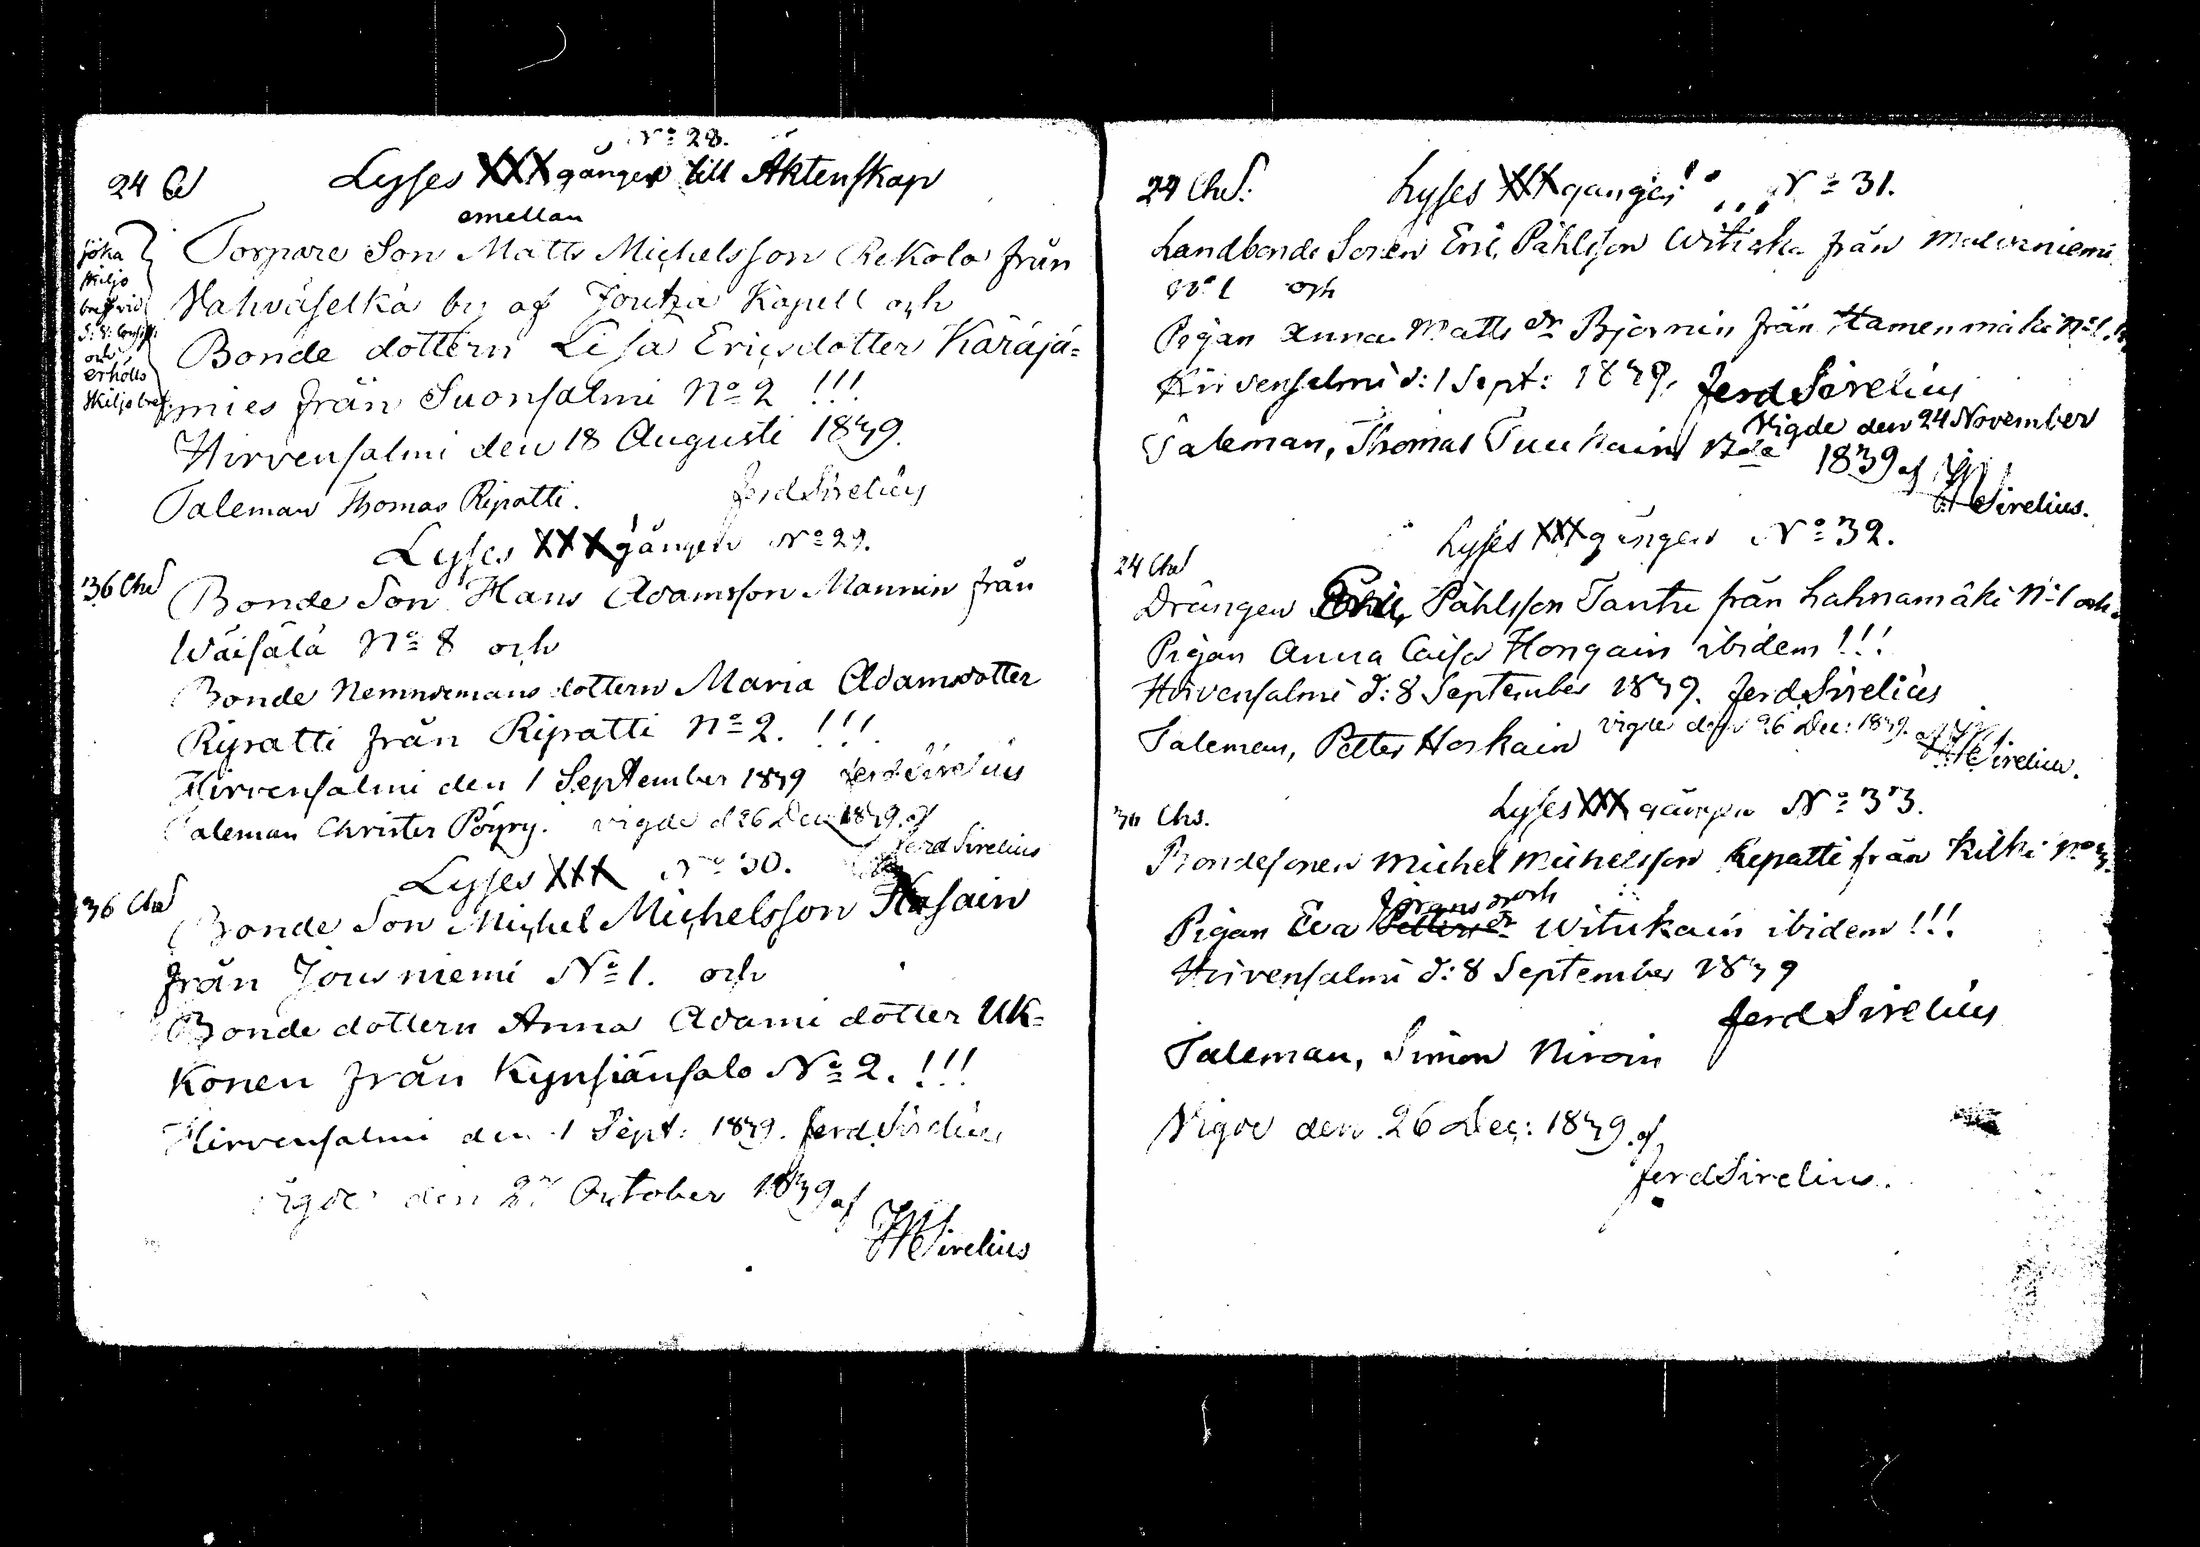 No 28.
24 Cs Lyses XXX gången till Äktenskap
emellan
Torpare Son Matts Michelsson Rekola från
Vahväselkä by af Joutza Kapell och
Bonde dottern Lisa Ericsdotter Käräjä=
mies från Suonsalmi No 2 !!!
söka
skiljo
bref vid
och
erhölls
skiljobref
Hirvensalmi den 18 Augusti 1839.
Taleman Thomas Ripatti. Ferd Sirelius
Lyses XXX gången No 29.
36 Chs Bonde Son Hans Adamsson Mannin från
Wäisälä No 8 och
Bonde Nemndemans dottern Maria Adamsdotter
Ripatti från Ripatti No 2. !!!
Hirvensalmi den 1 September 1839 Ferd Sirelius
Taleman Christer Pöyry. vigde d 26 Dec 1839. af
Ferd Sirelius
Lyses XXX No 30.
36 Chs Bonde Son Michel Michelsson Hasain
från Jousniemi No 1. och
Bonde dottern Anna Adami dotter Uk=
konen från Kynsiänsalo No 2. !!!
Hirvensalmi den 1 Sept: 1839. Ferd Sirelius
vigde den 27 October 1839 af
Sirelius
24 Chs: Lyses XXX gången No 31.
Landbonde Sonen Eric Påhlsson Witiska från
No 1 och
Pigan Anna Matts dr Björnin från Hamenmäki No 1 !!!
Hirvensalmi d: 1 Sept: 1839. Ferd Sirelius
Taleman, Thomas Tuukain Vigde den 24 November
1839 af
Sirelius.
Lyses XXX gången No 32.
24 Chs
Drängen Påhlsson Tanttu från Lahnamäki No 1 och
Pigan Anna Caisa Hongain ibidem !!!
Hirvensalmi d: 8 September 1839. Ferd Sirelius
Taleman, Petter Horkain vigde den 26 Dec: 1839. af
Sirelius.
Lyses XXX gången No 33.
30 Chs.
Bondesonen Michel Michelsson Ripatti från Kilki No 3.
Jörans dr och
Pigan Eva Petters dr Witukain ibidem !!!
Hirvensalmi d: 8 September 1839
Ferd Sirelius
Taleman, Simon Niroin
Vigde den 26 Dec: 1839. af
Ferd Sirelius.